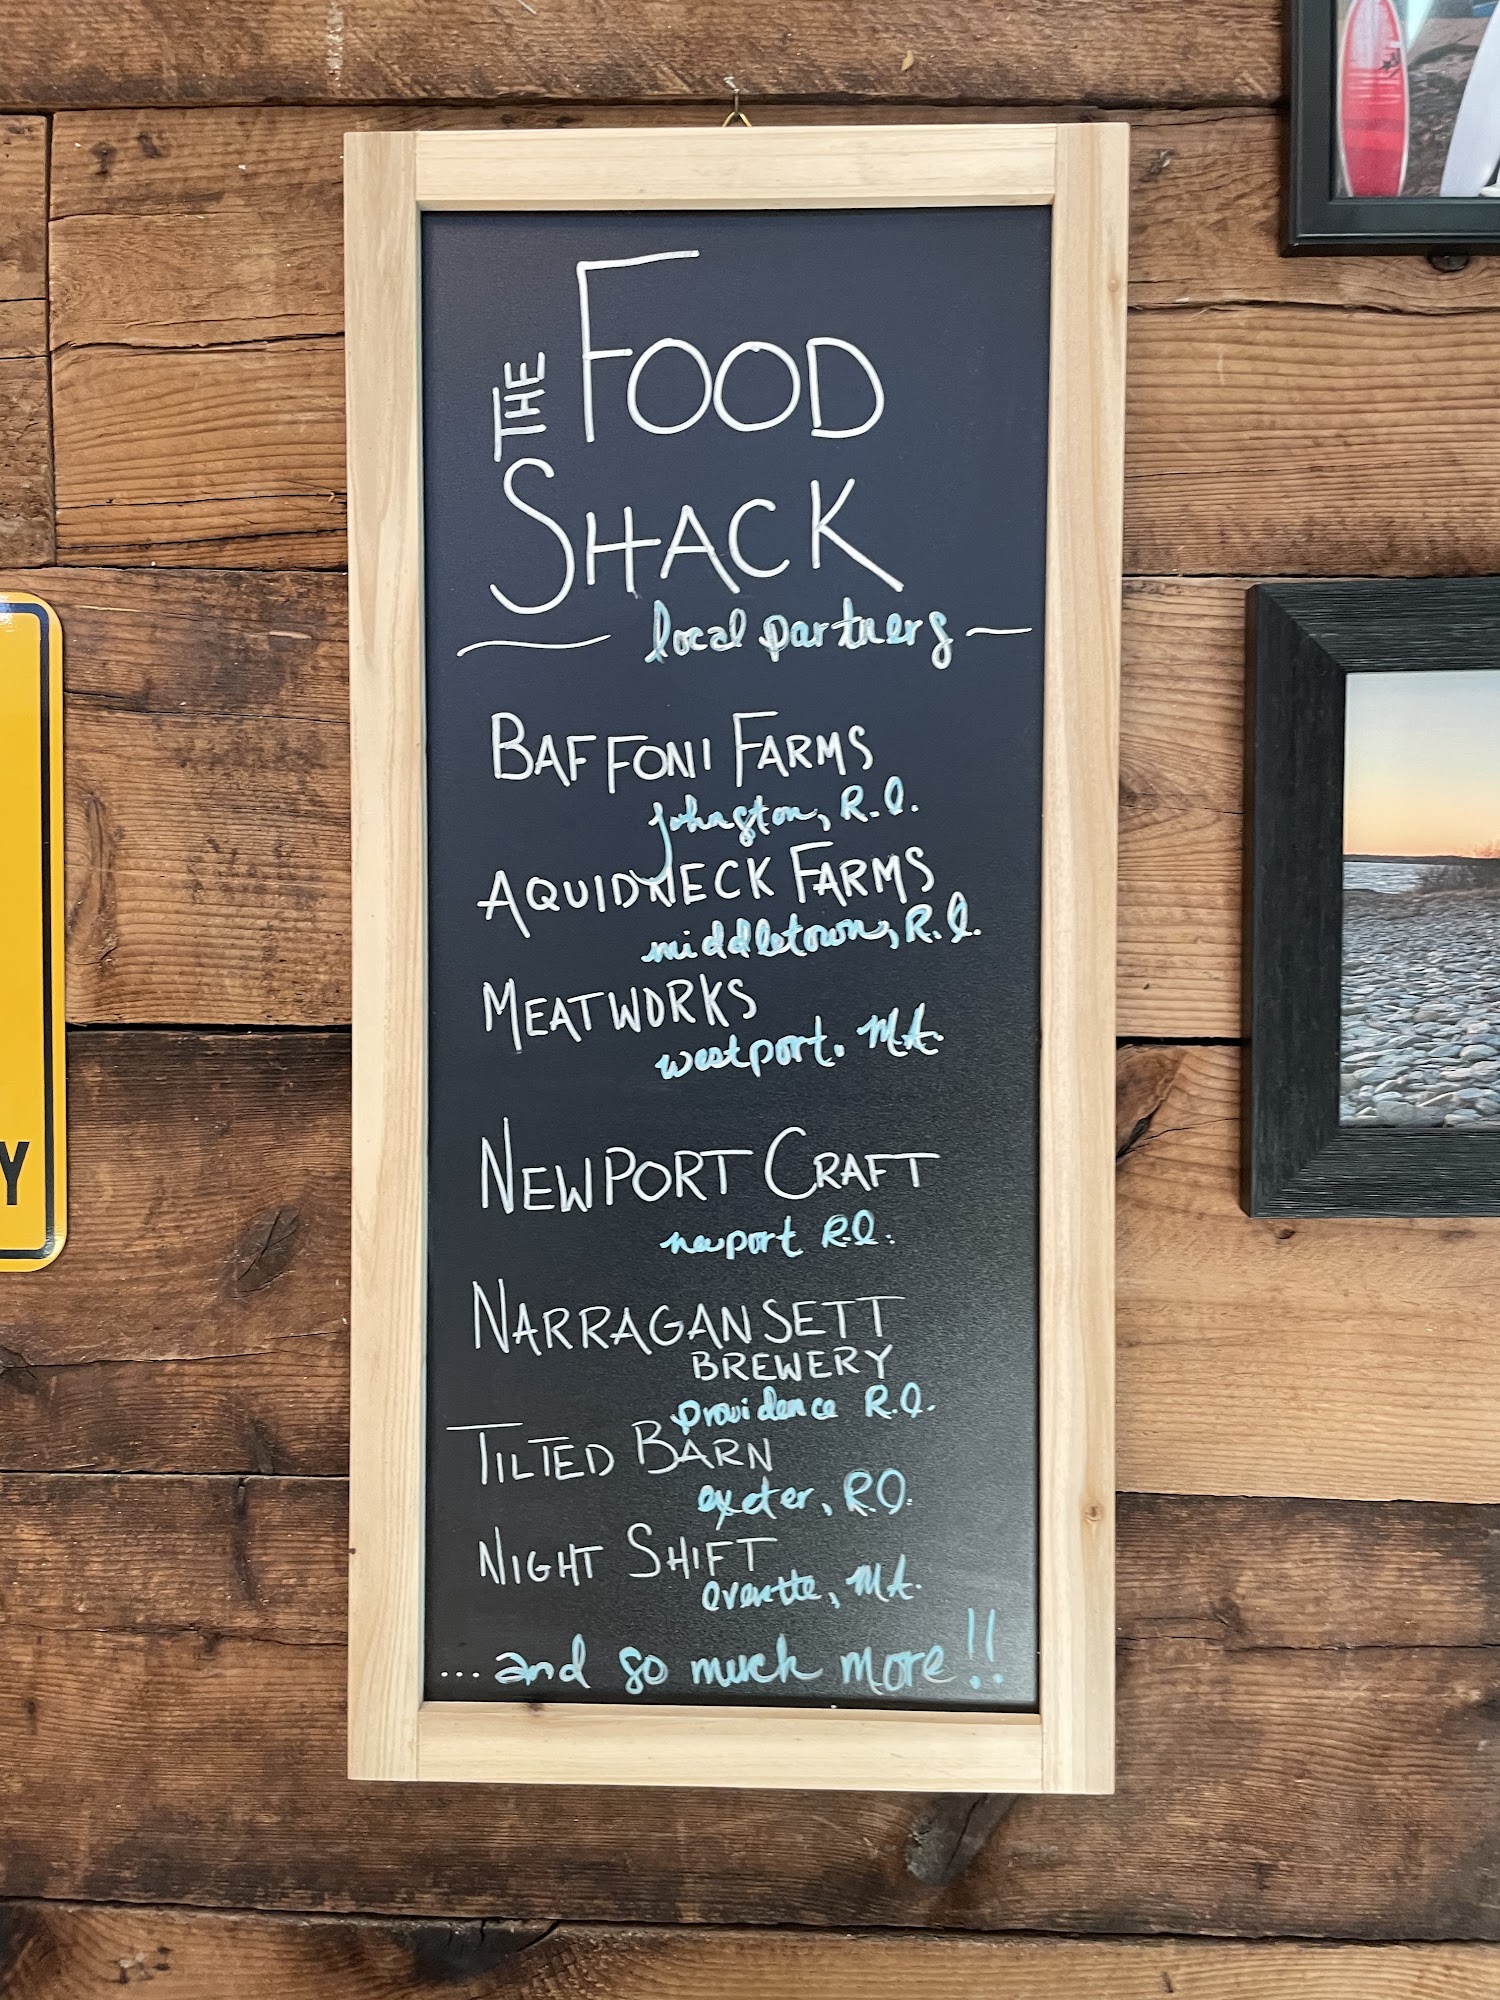 THE FOOD
SHACK
local partners
BAFFONI FARMS
johnston, R.I.
AQUIDNECK FARMS
middletown, R.I.
MEATWORKS
westport. MA.
NEWPORT CRAFT
newport R.I.
NARRAGANSETT
BREWERY
providence R.I.
TILTED BARN
exeter, R.I.
NIGHT SHIFT
everette, MA.
... and so much more!!
Y